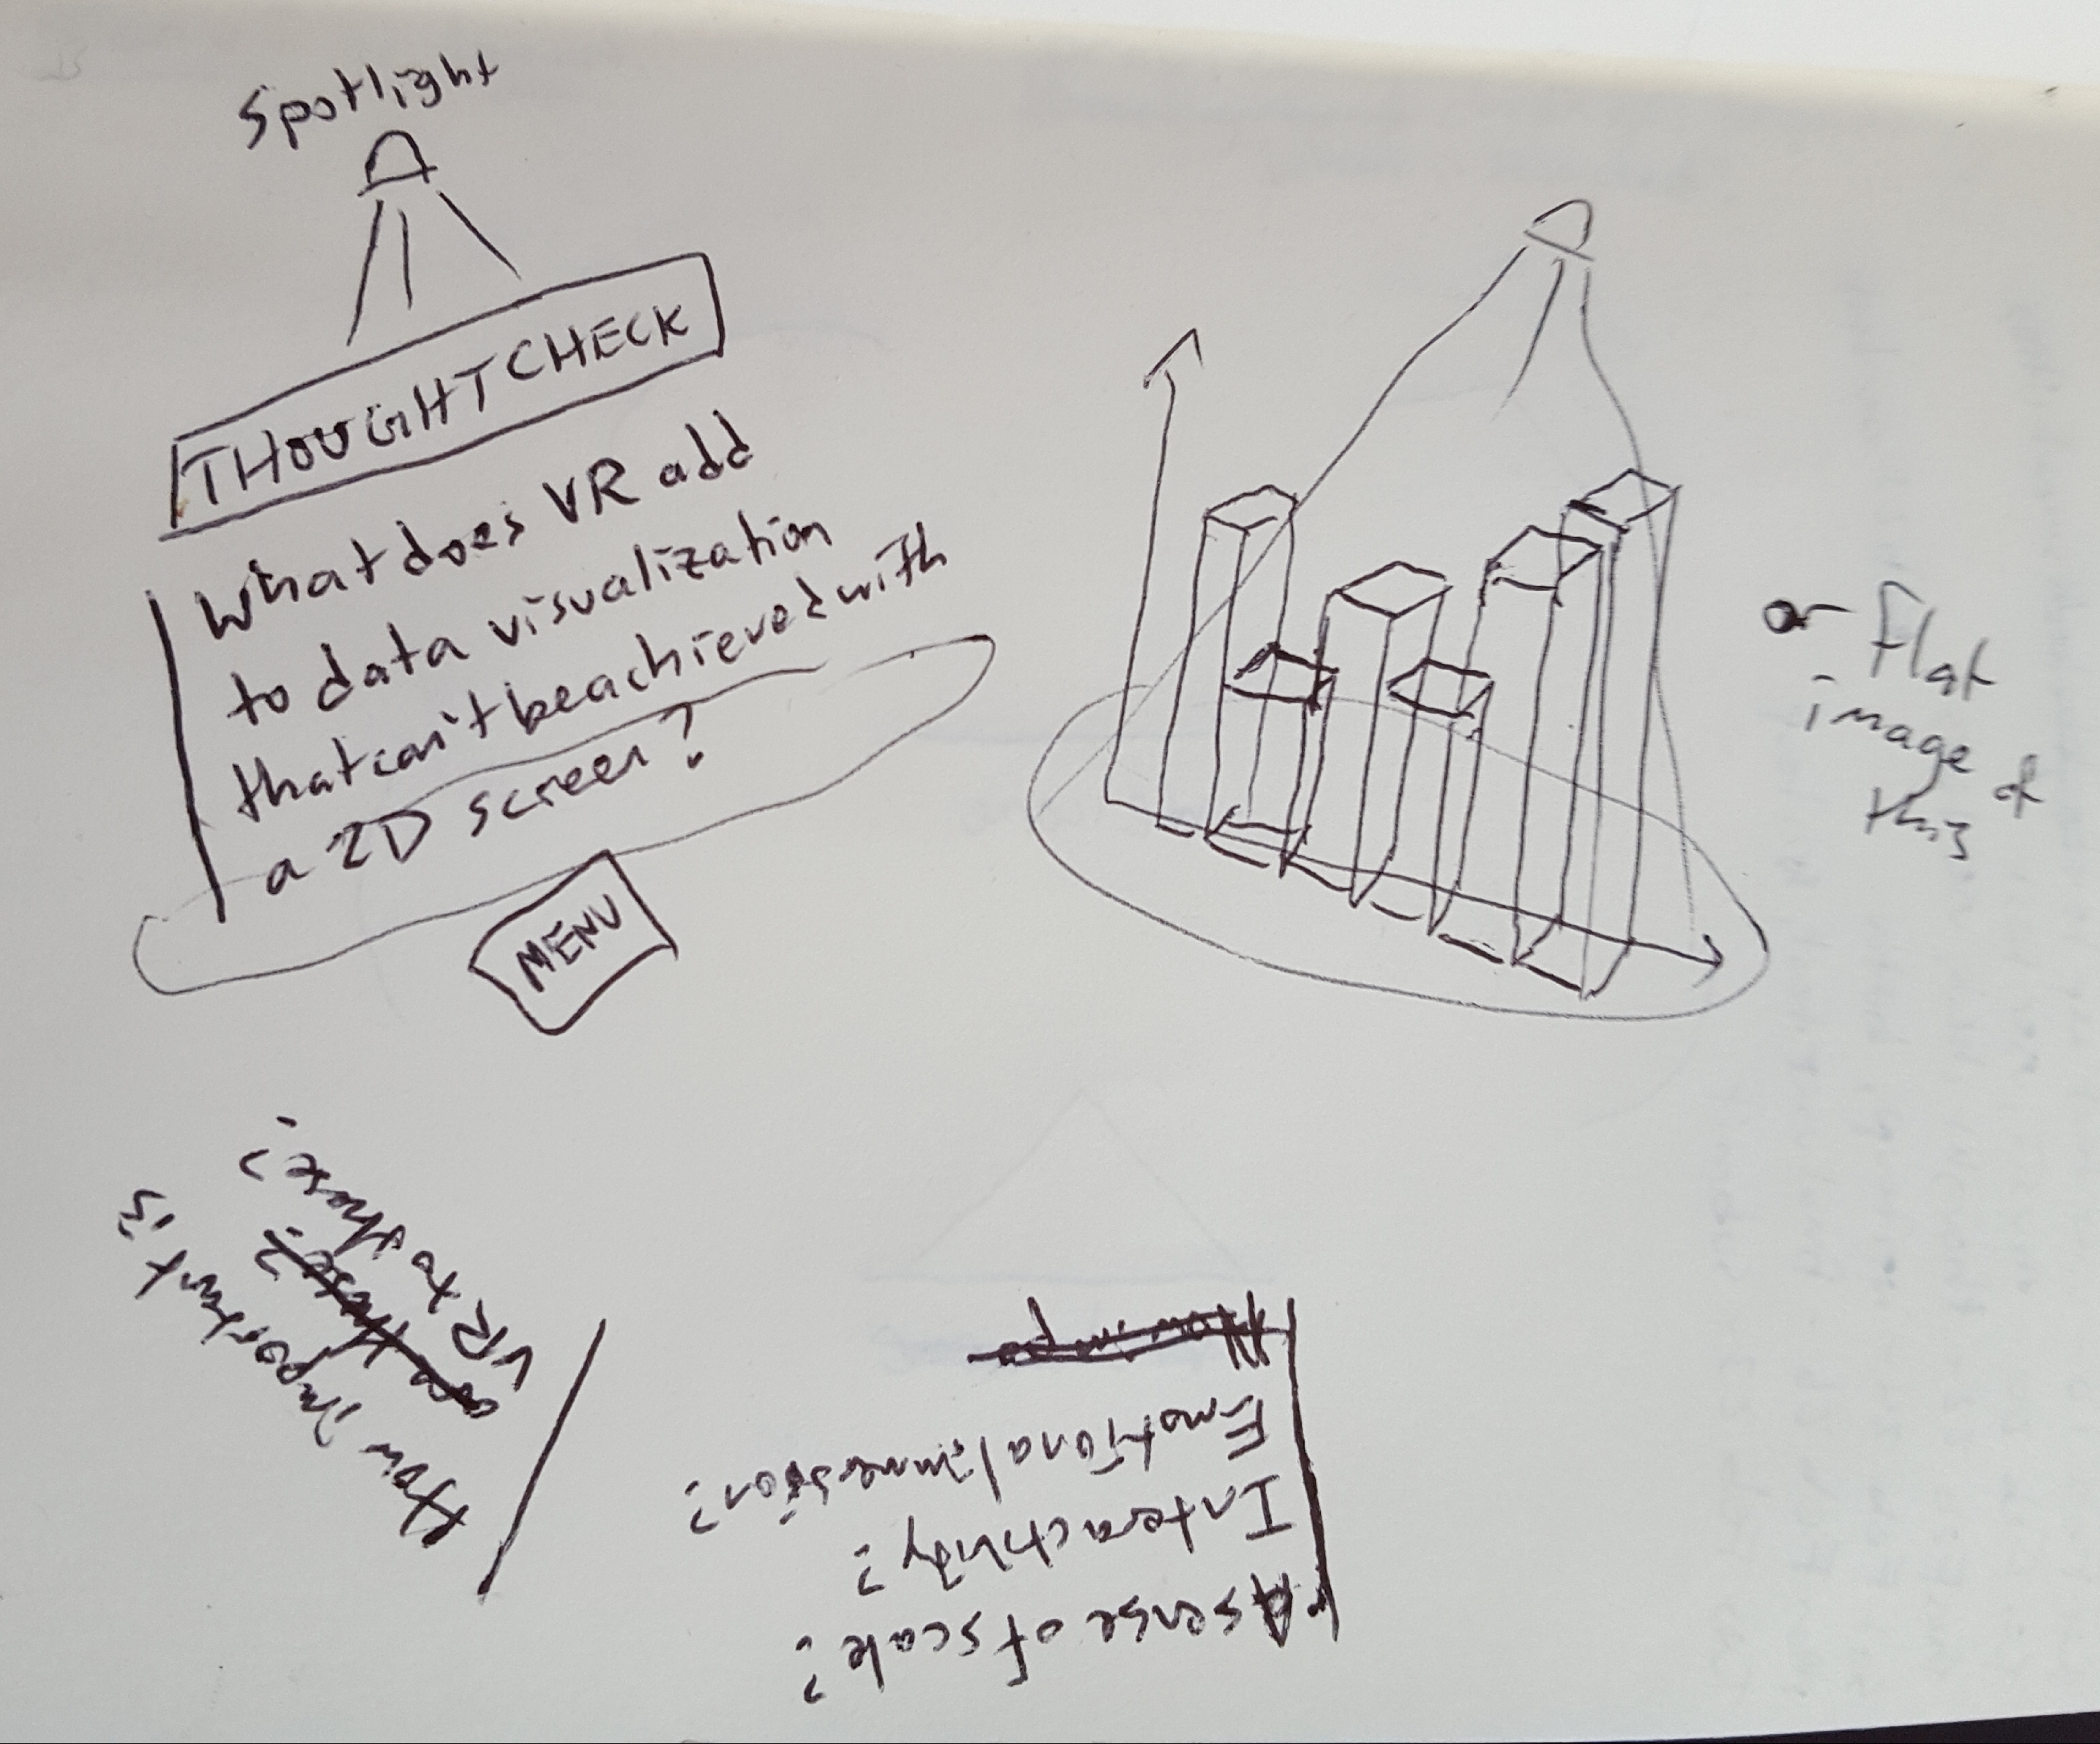 Spotlight
THOUGHTCHECK
What does VR add
to data visualization
that can't be achieved with
a 2D screen?
MENU
or Flat
image of
this
A sense of scale?
Interactivity?
Emotional immersion?
How impo
How important is
are these?
VR to these?